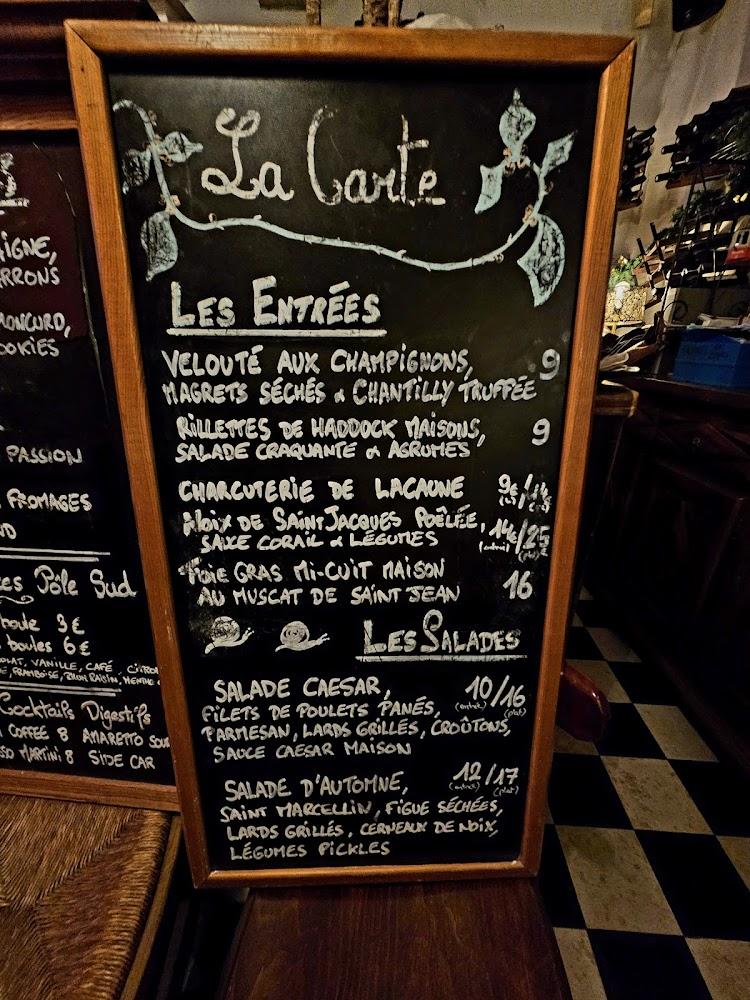 La Carte
LES ENTRÉES
VELOUTÉ AUX CHAMPIGNONS, 9
MAGRETS SÉCHÉS & CHANTILLY TRUFFÉE
RILLETTES DE HADDOCK MAISONS, 9
SALADE CRAQUANTE & AGRUMES
CHARCUTERIE DE LACAUNE 9€/14€
NOIX DE SAINT JACQUES POÊLÉE, 14€/25
SAUCE CORAIL & LÉGUMES (entrée) (plat)
FOIE GRAS MI-CUIT MAISON
AU MUSCAT DE SAINT JEAN 16
LES SALADES
SALADE CAESAR, 10/16
FILETS DE POULETS PANÉS, (entrée) (plat)
PARMESAN, LARDS GRILLÉS, CROÛTONS,
SAUCE CAESAR MAISON
SALADE D'AUTOMNE, 12/17
(entrée) (plat)
SAINT MARCELLIN, FIGUE SÉCHÉES,
LARDS GRILLÉS, CERNEAUX DE NOIX,
LÉGUMES PICKLES
AIGNE,
ARRONS
MONCURD,
OOKIES
PASSION
FROMAGES
ND
ces Pôle Sud
boule 3€
boules 6€
OLAT, VANILLE, CAFÉ, CITRON
FRAMBOISE, RHUM RAISIN, MENTHE
Cocktails Digestifs
COFFEE 8 AMARETTO SOU
SSO MARTINI 8 SIDE CAR